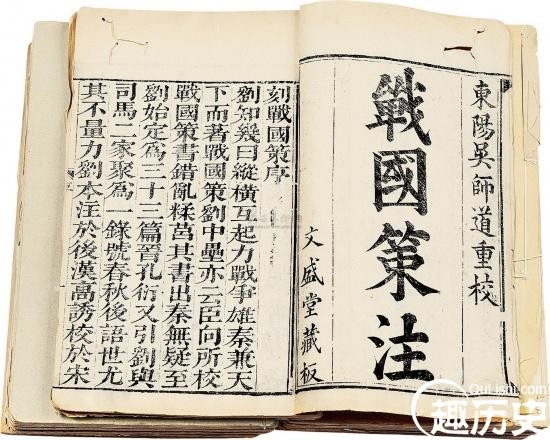 東陽吳師道重校
戰國策注
文盛堂藏板
刻戰國策序
劉知幾曰縱橫互起力戰爭雄秦兼天
下而著戰國策劉中壘亦云臣向所校
戰國策書錯亂糅莒其書出秦無疑至
劉始定爲三十三篇晉孔衍又引劉與
司馬二家聚爲一錄號春秋後語世尤
其不量力劉本注於後漢高誘校於宋
QuLishi.com
趣历史